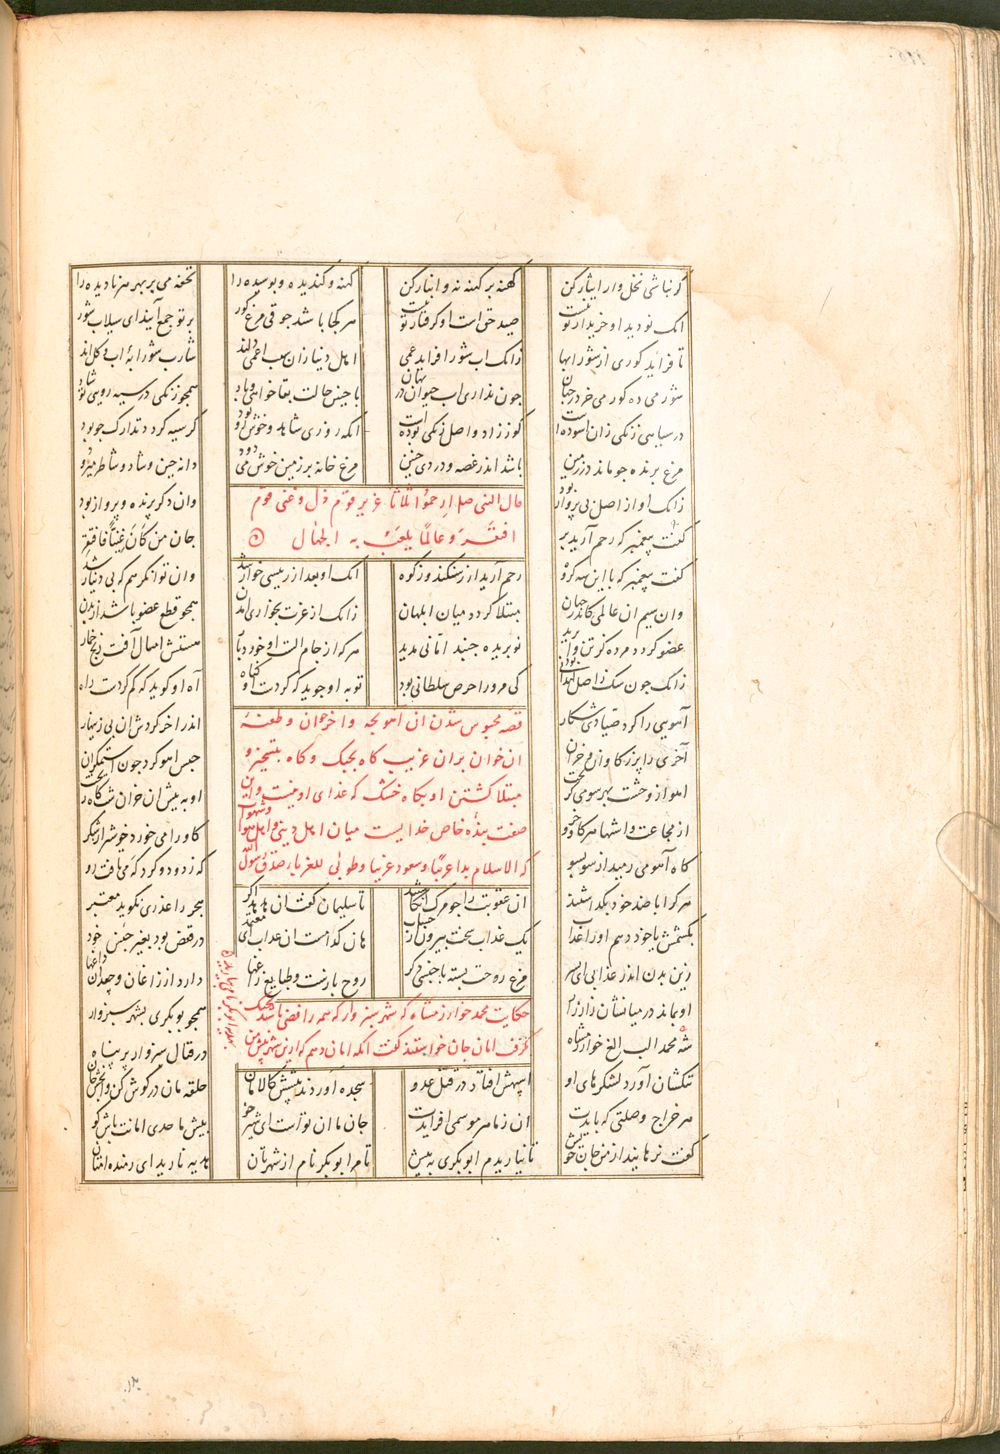 کر نباشی نخل وار ایثار کن
کهنه بر کهنه نه و انبار کن
کهنه و کندیده و بوسیده را
تحفه می بر بهر هر نادیده را
انک نو دید او خریدار تو نیست
صید حق است او کرفتار تو نیست
هر کجا باشد جوقی مرغ کور
بر تو جمع آیند ای سیلاب شور
تا فزاید کوری از شور ابها
زانک اب شور افزاید عمی
اهل دنیا زان سبب اعمی دلند
شارب شورابهٔ اب و کل اند
شور می ده کور می خر در جهان
چون نداری اب حیوان در نهان
با چنین حالت بقا خواهی و یاد
همچو زنکی در سیه رویی تو شاد
در سیاهی زنکی زان اسوده است
کو ز زاد و اصل زنکی بوده است
انکه روزی شاهد و خوش رو بود
کر سیه کردد تدارک جو بود
مرغ پرنده چو ماند در زمین
باشد اندر غصه و درد و حنین
مرغ خانه بر زمین خوش می رود
دانه چین و شاد و شاطر میدود
زانک او از اصل بی پرواز بود
وان دکر پرنده و پرواز بود
قال النبی صلعم ارحموا ثلاثا عزیز قوم ذل و غنی قوم
افتقر و عالما یلعب به الجهال
کفت پیغمبر که رحم آرید بر
جان من کان غنیا فافتقر
کفت پیغمبر که با این سه کروه
رحم آرید ار ز سنکند و ز کوه
انک او بعد از رییسی خوار شد
وان توانکر هم که بی دینار شد
وان سیم ان عالمی کاندر جهان
مبتلا کردد میان ابلهان
زانک از عزت بخواری آمدن
همچو قطع عضو باشد از بدن
عضو کردد مرده کز تن وا برید
نو بریده جنبد اما نی مدید
هر که از جام الست او خورد پار
هستش امسال آفت رنج خمار
زانک چون سک ز اصل کهدانی بود
کی مرو را حرص سلطانی بود
توبه او جوید که کردست او کناه
آه او کوید که کم کردست راه
قصه محبوس شدن ان اهو بچه و اخر خران و طعنهٔ
آن خران بران غریب کاه بجنک و کاه بتسخر و
مبتلا کشتن او بکاه خشک که غذای او نیست و این
صفت بندهٔ خاص خدایست میان اهل دینی و اهل هوا و شهوات
که الاسلام بدا غریبا و سیعود غریبا و طوبی للغربا صدق رسول الله
آهویی را کرد صیادی شکار
اندر اخر کردش ان بی زینهار
آخری را پر ز کاوان و خران
حبس اهو کرد چون استمکران
اهو از وحشت بهر سو می کریخت
او به پیش ان خران شب کاه ریخت
از مجاعت و اشتها هر کاو و خر
کاه را می خورد خوشتر از شکر
کاه آهو می رمید از سو بسو
که ز دود و کرد که می تافت رو
هر کرا با ضد خود بکداشتند
ان عقوبت را چو مرک انکاشتند
تا سلیمان کفت ان هدهد اکر
هجر را عذری نکوید معتبر
بکشمش یا خود دهم او را عذاب
یک عذاب سخت بیرون از حساب
هان کدامست ان عذاب ای معتمد
در قفص بود بغیر جنس خود
زین بدن اندر عذابی ای پسر
مرغ روحت بسته با جنسی دکر
روح بازست و طبایع زاغها
دارد از زاغان و جغدان داغها
حکایت محمد خوارزمشاه که شهر سبزوار که همه رافضی باشند بجنک
بکرفت امان جان خواستند کفت انکه امان دهم که ازین شهر پیش من
بهدیه ابوبکر نامی بیارید
او بمانده در میانشان زار زار
همچو بوبکری بشهر سبزوار
شه محمد الب الغ خوارزمشاه
در قتال سبزوار پر پناه
تنکشان آورد لشکرهای او
اسپهش افتاد در قتل عدو
سجده آوردند پیشش کالامان
حلقه مان در کوش کن وا بخش جان
هر خراج و صلتی که بایدت
ان ز ما هر موسمی افزایدت
جان ما ان تو است ای شیر خو
پیش ما چندی امانت باش کو
کفت نرهانید از من جان خویش
تا نیاریدم ابوبکری به پیش
تا مرا بوبکر نام از شهرتان
هدیه نارید ای رمیده امتان